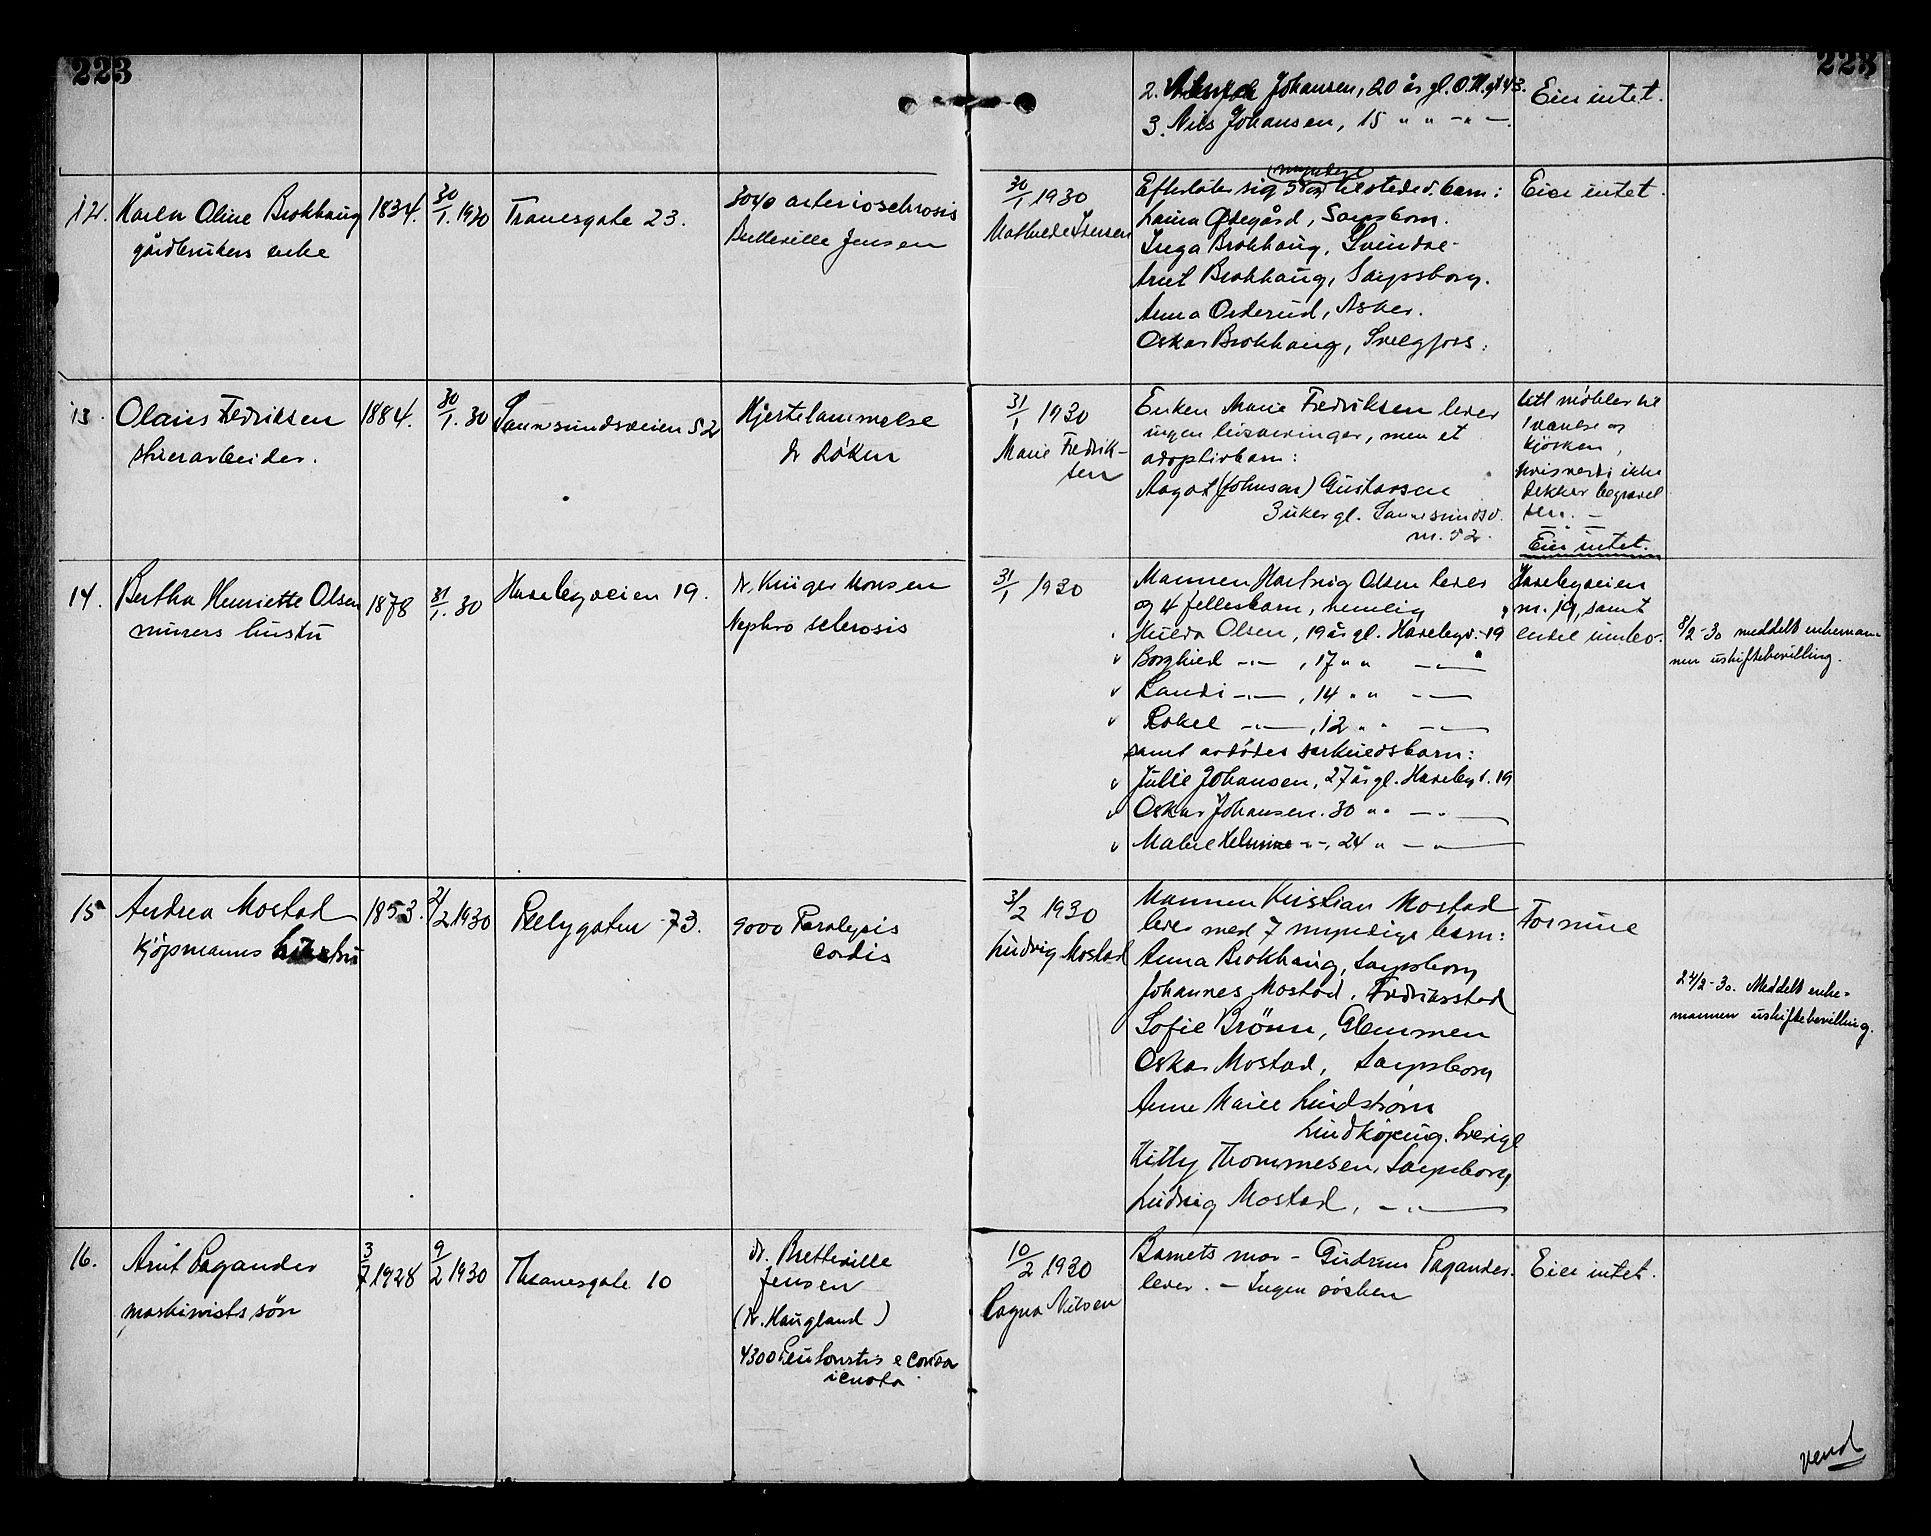 223
223
2. Johansen, 20 år gl. O.H.gt 43.
3. Nils Johansen, 15 " " -"-
Eier intet.
12. Karen Oline Brokhaug
gårdbrukers enke
1834.
30/1.1930
Tranesgate 23.
3040 arteriosclerosis
Bretteville Jensen
30/1 1930
Mathilde Iversen
myndige
Efterlater sig 5 tilstedev. barn:
Laura Ødegård, Sarpsborg.
Inga Brokhaug, Svindal
Arnt Brokhaug, Sarpsborg.
Anna Osterud, Asker.
Oskar Brokhaug, Svelgfoss.
Eier intet.
13. Olaus Fredriksen
skierarbeider.
1884.
30/1.30
Sannesundsveien 52
Hjertelammelse
Dr Røken
31/1 1930
Marie Fredrik-
sen
Enken Marie Fredriksen lever
ingen livsarvinger, men et
adoptivbarn:
Aagot (Johnsen) Gustavsen
3 uker gl. Sannesundsv.
nr. 52.
Litt møbler til
1 værelse og
kjøkken,
hvis verdi ikke
dekker begravel
sen. -
Eier intet.
14. Bertha Henriette Olsen
murers hustru
1878
31/1.30
Haslebyveien 19.
Dr. Krüger Monsen
Nephro sclerosis
31/1 1930
Mannen Hartvig Olsen lever
og 4 fellesbarn, nemlig
Hulda Olsen, 19 år gl. Haslebyv. 19
Borghild -"- , 17 " " -"-
Randi -"- , 14 " " -"-
Rakel -"- , 12 " " -"-
samt avdødes særkullsbarn:
Julie Johansen, 27 år gl. Hasleby v. 19
Oskar Johansen. 30 " " -"-
Malie Helmine -"-, 24 " -"-
Haslebyveien
nr. 19, samt
endel innbo.
8/2-30 meddelt enkeman-
nen uskiftebevilling.
15 Andrea Mostad
Kjøpmanns hustru
1853.
2/2 1930
Pellygaten 73.
9000 Paralysis
Cordis
3/2 1930
Ludvig Mostad
Mannen Kristian Mostad
lever med 7 myndige barn:
Anna Brokhaug, Sarpsborg
Johannes Mostad, Fredrikstad
Sofie Brönn, Glemmen
Oskar Mostad, Sarpsborg
Anne Marie Lindstrøm
Lindköping. Sverige
Kitty Thommesen, Sarpsborg
Ludvig Mostad, -"-
Formue
24/2-30. Meddelt enke-
mannen uskiftebevilling.
16. Arnt Pagander
maskinists søn
3/7 1928
9/2 1930
Tranesgate 10
Dr. Bretteville
Jensen
(Dr. Haugland)
4300
10/2 1930
Ragna Nilsen
Barnets mor - Gudrun Pagander.
lever. - Ingen søsken
Eier intet.
vend